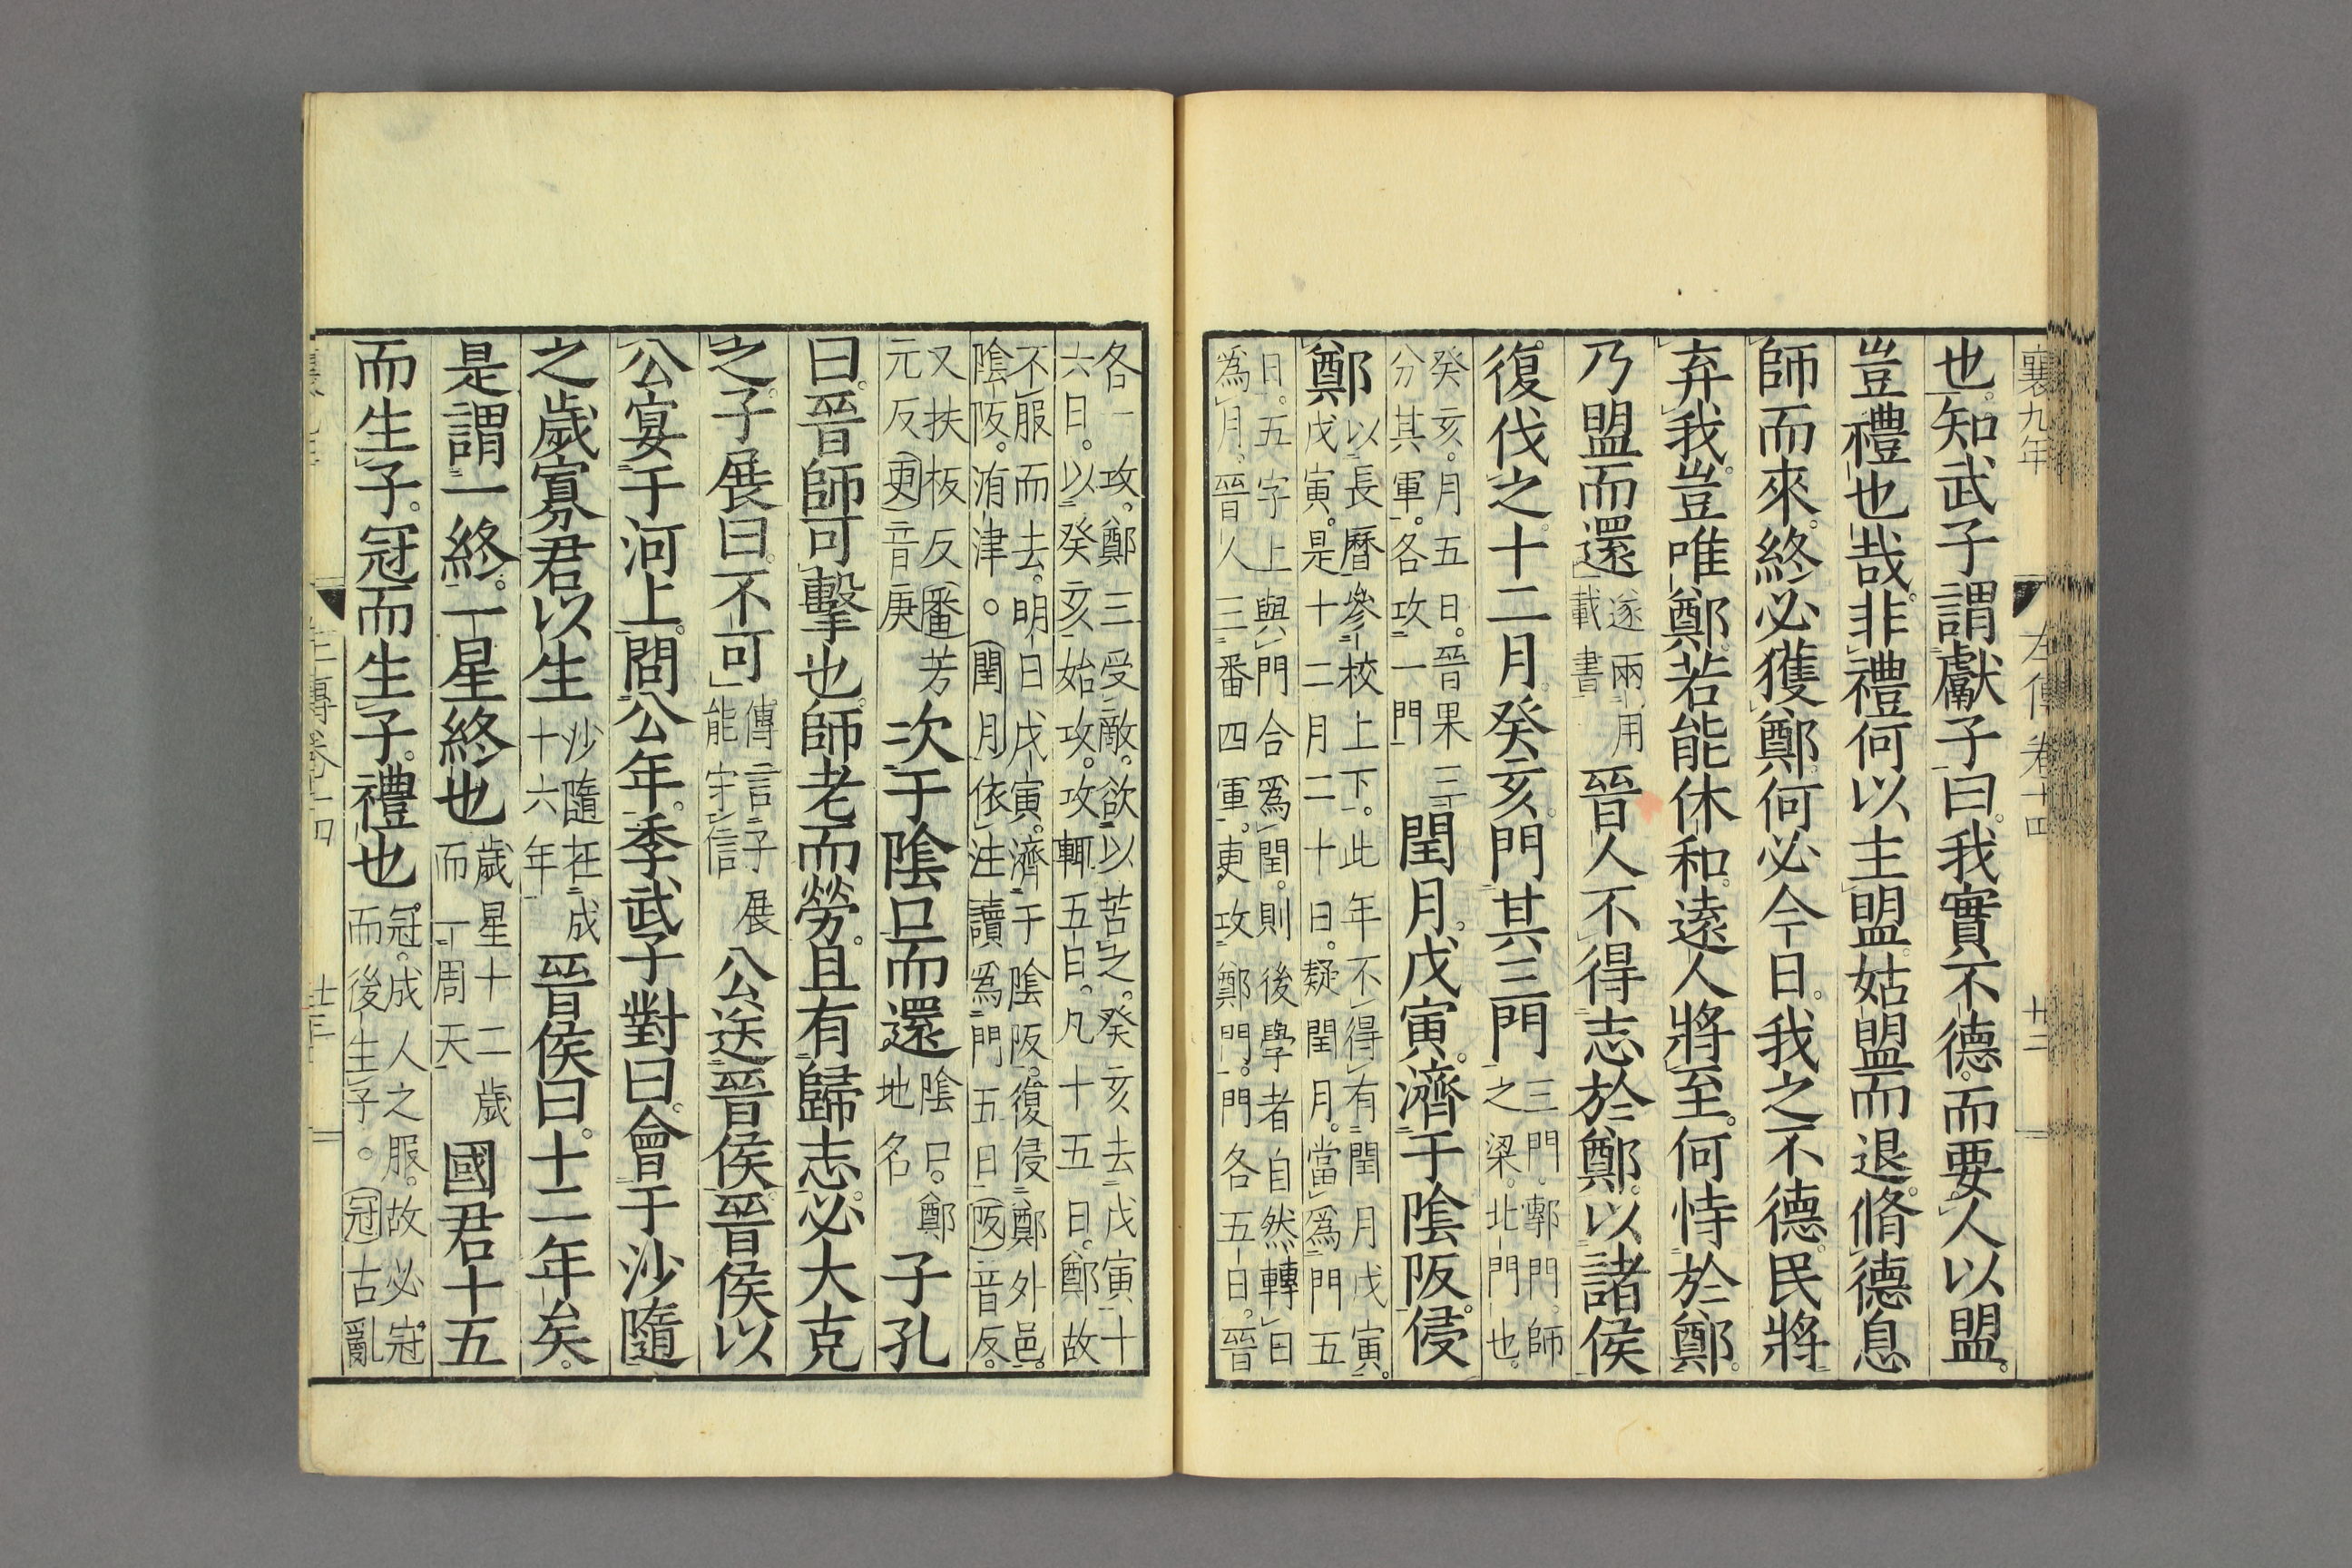 襄九年 左傳卷十四 廿二
也。知武子謂獻子曰。我實不德。而要人以盟。
豈禮也哉。非禮何以主盟。姑盟而退。脩德息
師而來。終必獲鄭。何必今日。我之不德。民將
弃我。豈唯鄭。若能休和。遠人將至。何恃於鄭。
乃盟而還遂兩用載書晉人不得志於鄭。以諸侯
復伐之。十二月癸亥。門其三門三門。鄟門。師之梁。北門也。
癸亥。月五日。晉果三分其軍。各攻一門閏月。戊寅。濟于陰阪。侵
鄭以長曆參校上下。此年不得有閏月戊寅。戊寅。是十二月二十日。疑閏月。當爲門五
日。五字上與門合爲閏。則後學者自然轉日爲月。晉人三番四軍。更攻鄭門。門各五日。晉
各一攻。鄭三受敵。欲以苦之。癸亥去戊寅十六日。以癸亥始攻。攻輒五日。凡十五日。鄭故
不服而去。明日戊寅。濟于陰阪。復侵鄭外邑。陰阪。洧津。○閏月依注讀爲門五日阪音反。
又扶板反番芳元反更音庚次于陰口而還陰口。鄭地名子孔
曰。晉師可擊也。師老而勞。且有歸志。必大克
之。子展曰。不可傳言子展能守信公送晉侯。晉侯以
公宴于河上。問公年。季武子對曰。會于沙隨
之歲寡君以生沙隨在成十六年晉侯曰。十二年矣。
是謂一終。一星終也歲星十二歲而一周天國君十五
而生子。冠而生子。禮也冠。成人之服。故必冠而後生子。○冠古亂